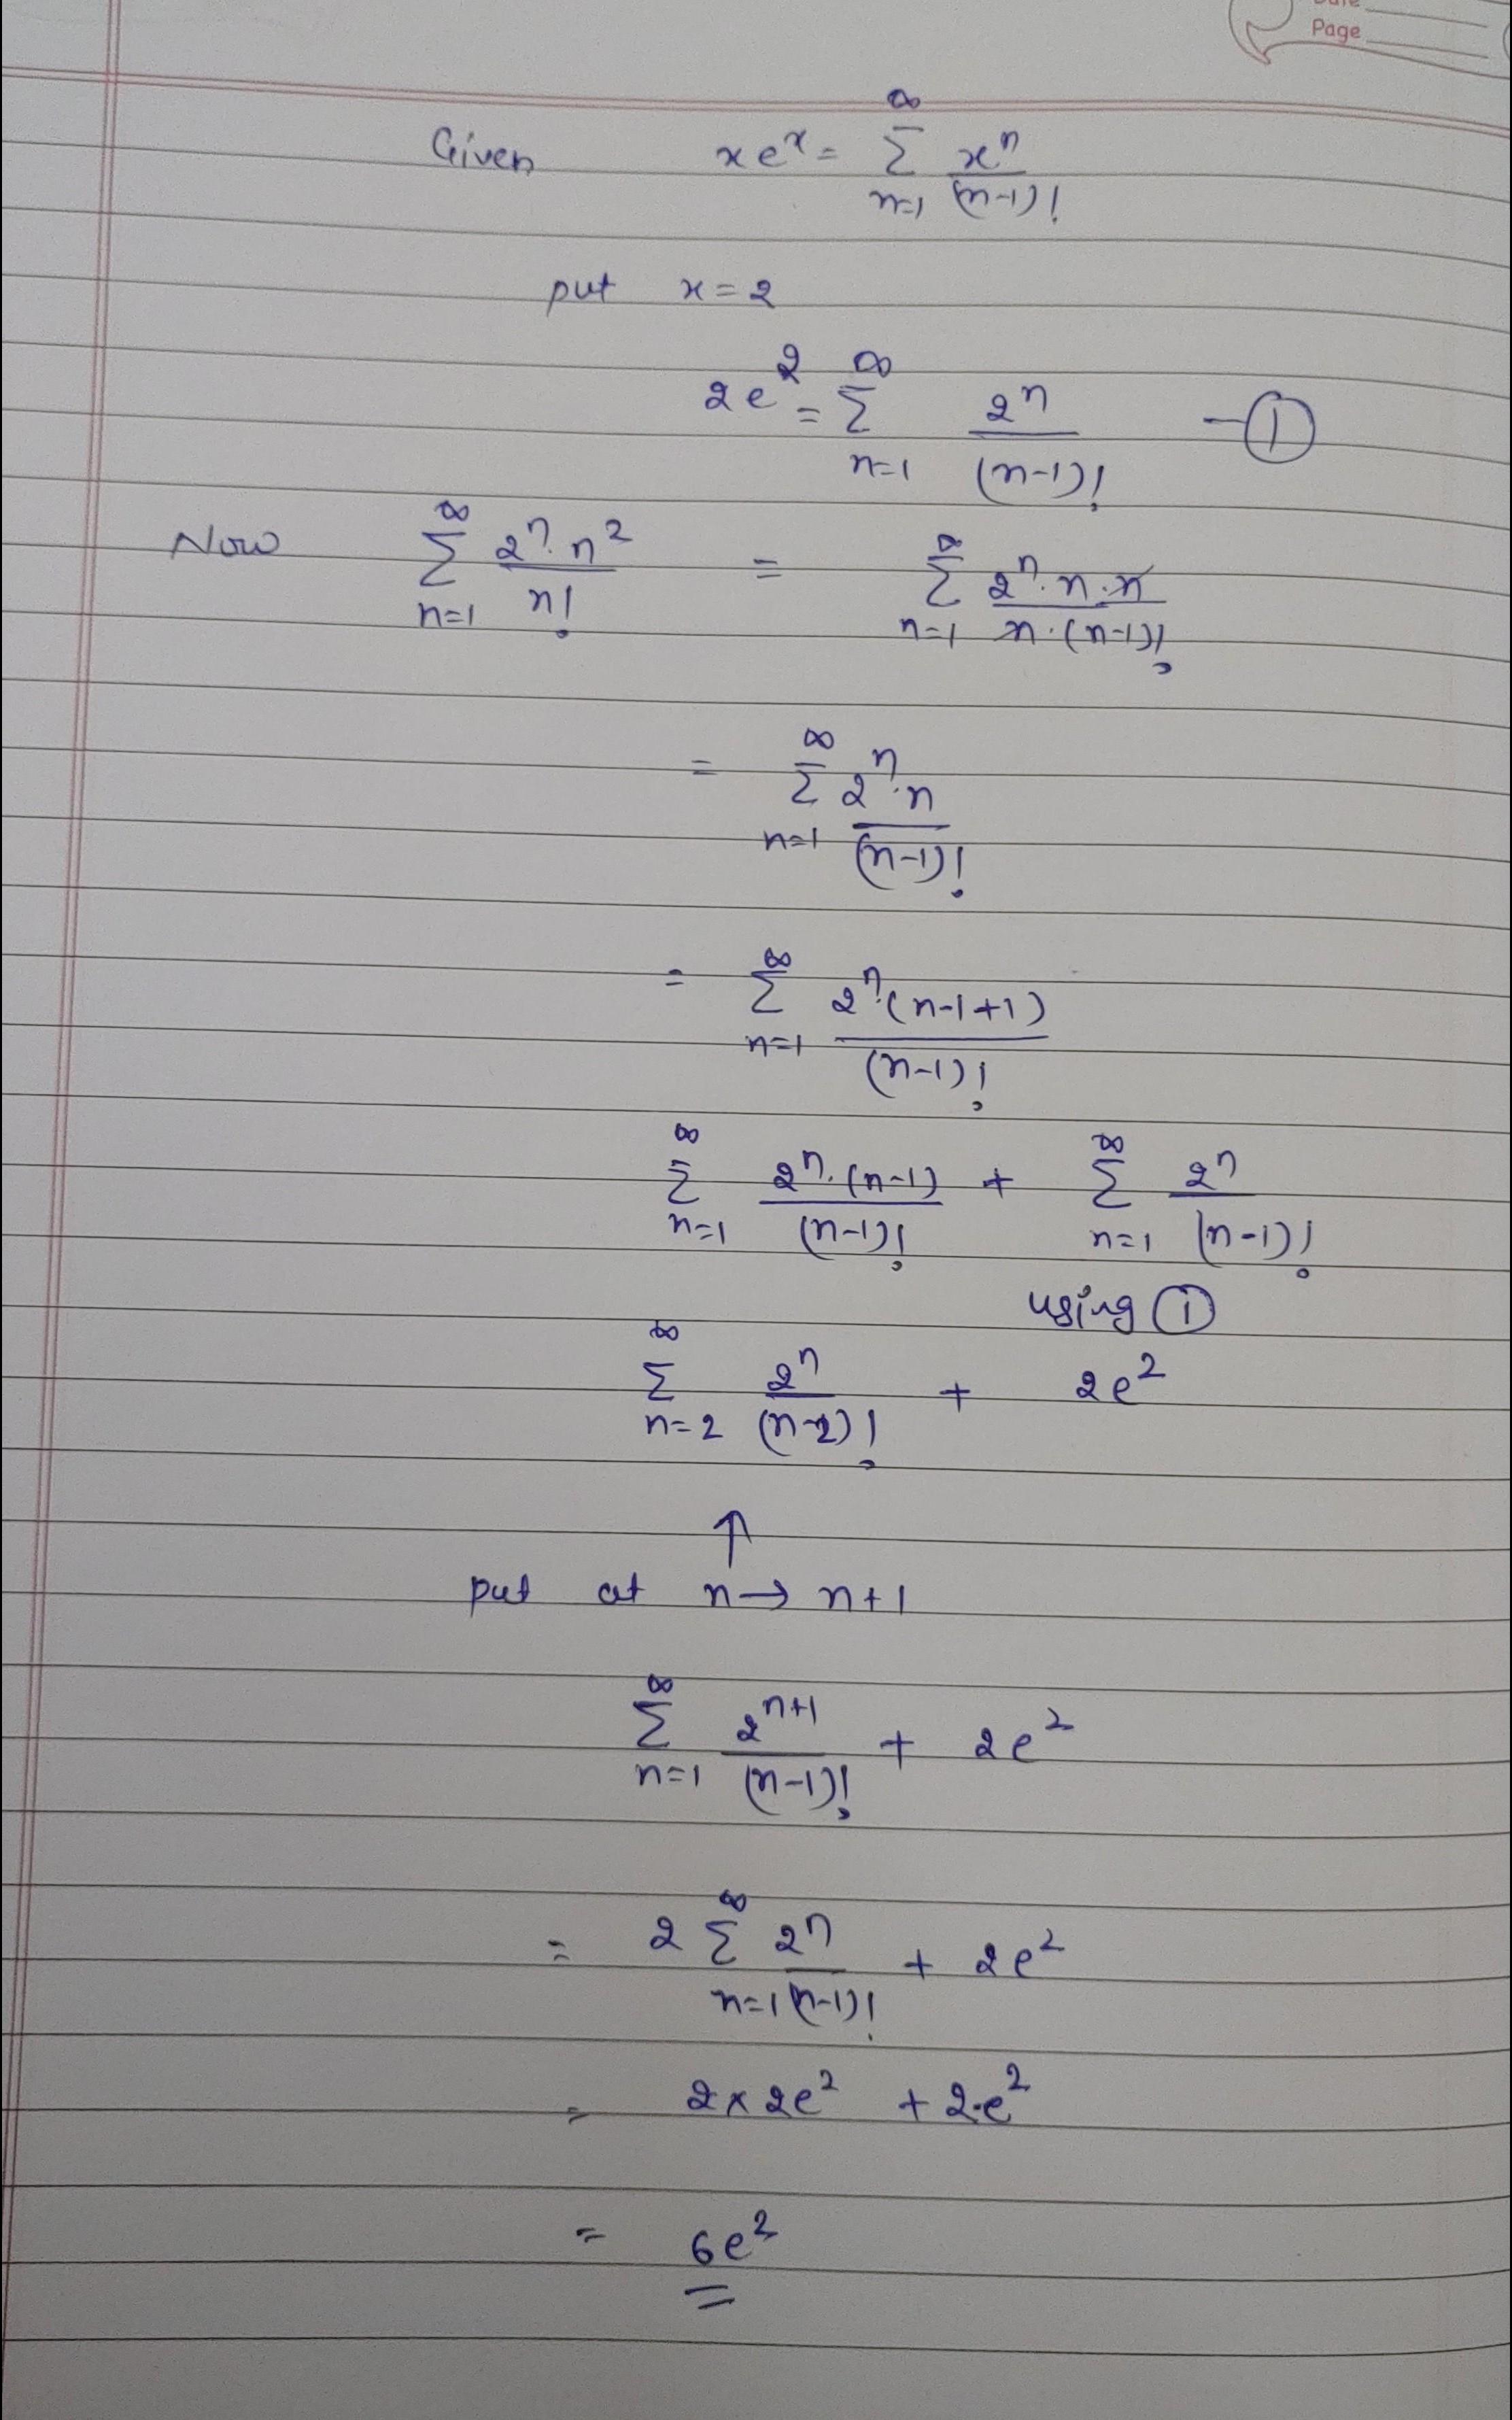 Date
Page
Given xe^x = ∞ Σ n=1 x^n/(n-1)!
put x = 2
2e^2 = ∞ Σ n=1 2^n/(n-1)! -①
Now ∞ Σ n=1 2^n·n^2/n! = ∞ Σ n=1 2^n·n·n/n·(n-1)!
= ∞ Σ n=1 2^n·n/(n-1)!
= ∞ Σ n=1 2^n·(n-1+1)/(n-1)!
∞ Σ n=1 2^n·(n-1)/(n-1)! + ∞ Σ n=1 2^n/(n-1)!
using ①
∞ Σ n=2 2^n/(n-2)! + 2e^2
↑
put at n → n+1
∞ Σ n=1 2^(n+1)/(n-1)! + 2e^2
= 2 ∞ Σ n=1 2^n/(n-1)! + 2e^2
= 2×2e^2 + 2·e^2
= 6e^2